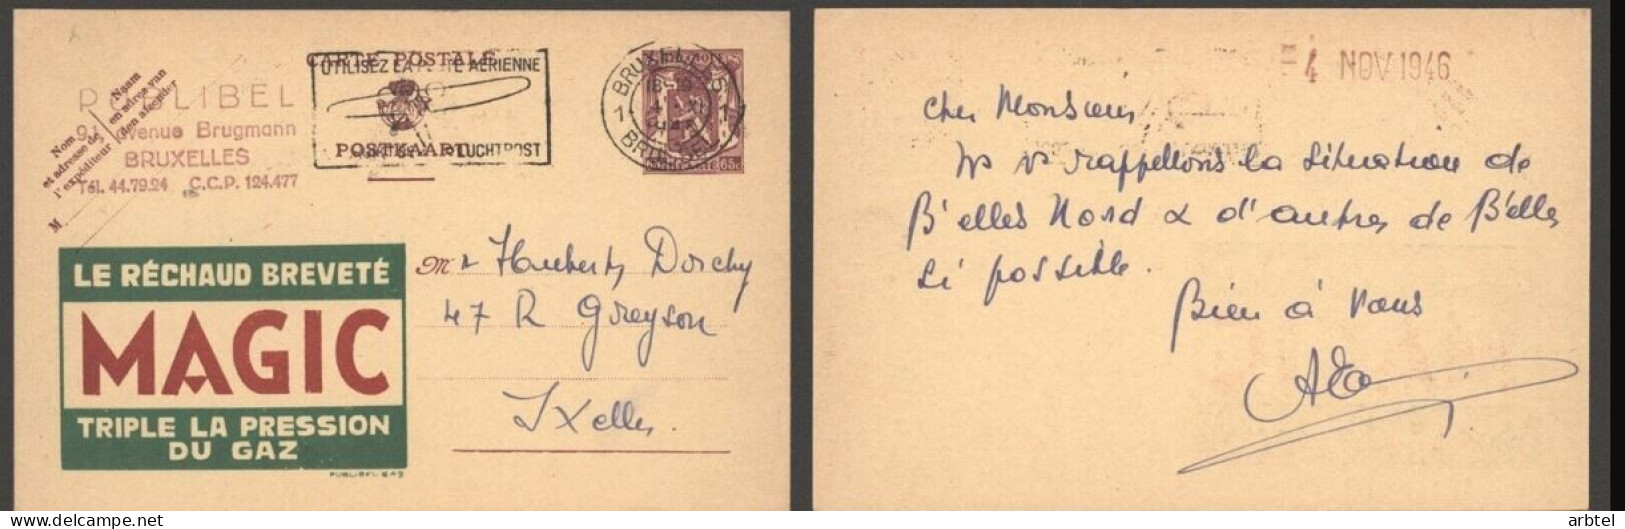 CARTE POSTALE
UTILISEZ LA POSTE AERIENNE
POSTKAART
LUCHTPOST
BRUXELLES
1 1
BRUSSEL
65c
Naam
en adres van
den afzender
Nom
et adresse de
l'expéditeur
M.
PUBLIBEL
91, avenue Brugmann
BRUXELLES
Tél. 44.79.24 C.C.P. 124.477
LE RÉCHAUD BREVETÉ
MAGIC
TRIPLE LA PRESSION
DU GAZ
PUBLIBEL 645
Mr Haubert, Dorchy
47 R Greyson
Ixelles.
= 4 NOV 1946
Cher Monsieur,
Ns vs rappellons la situation de
B'elles Nord & d'autres de B'elles
si possible.
Bien à vous
arbtel